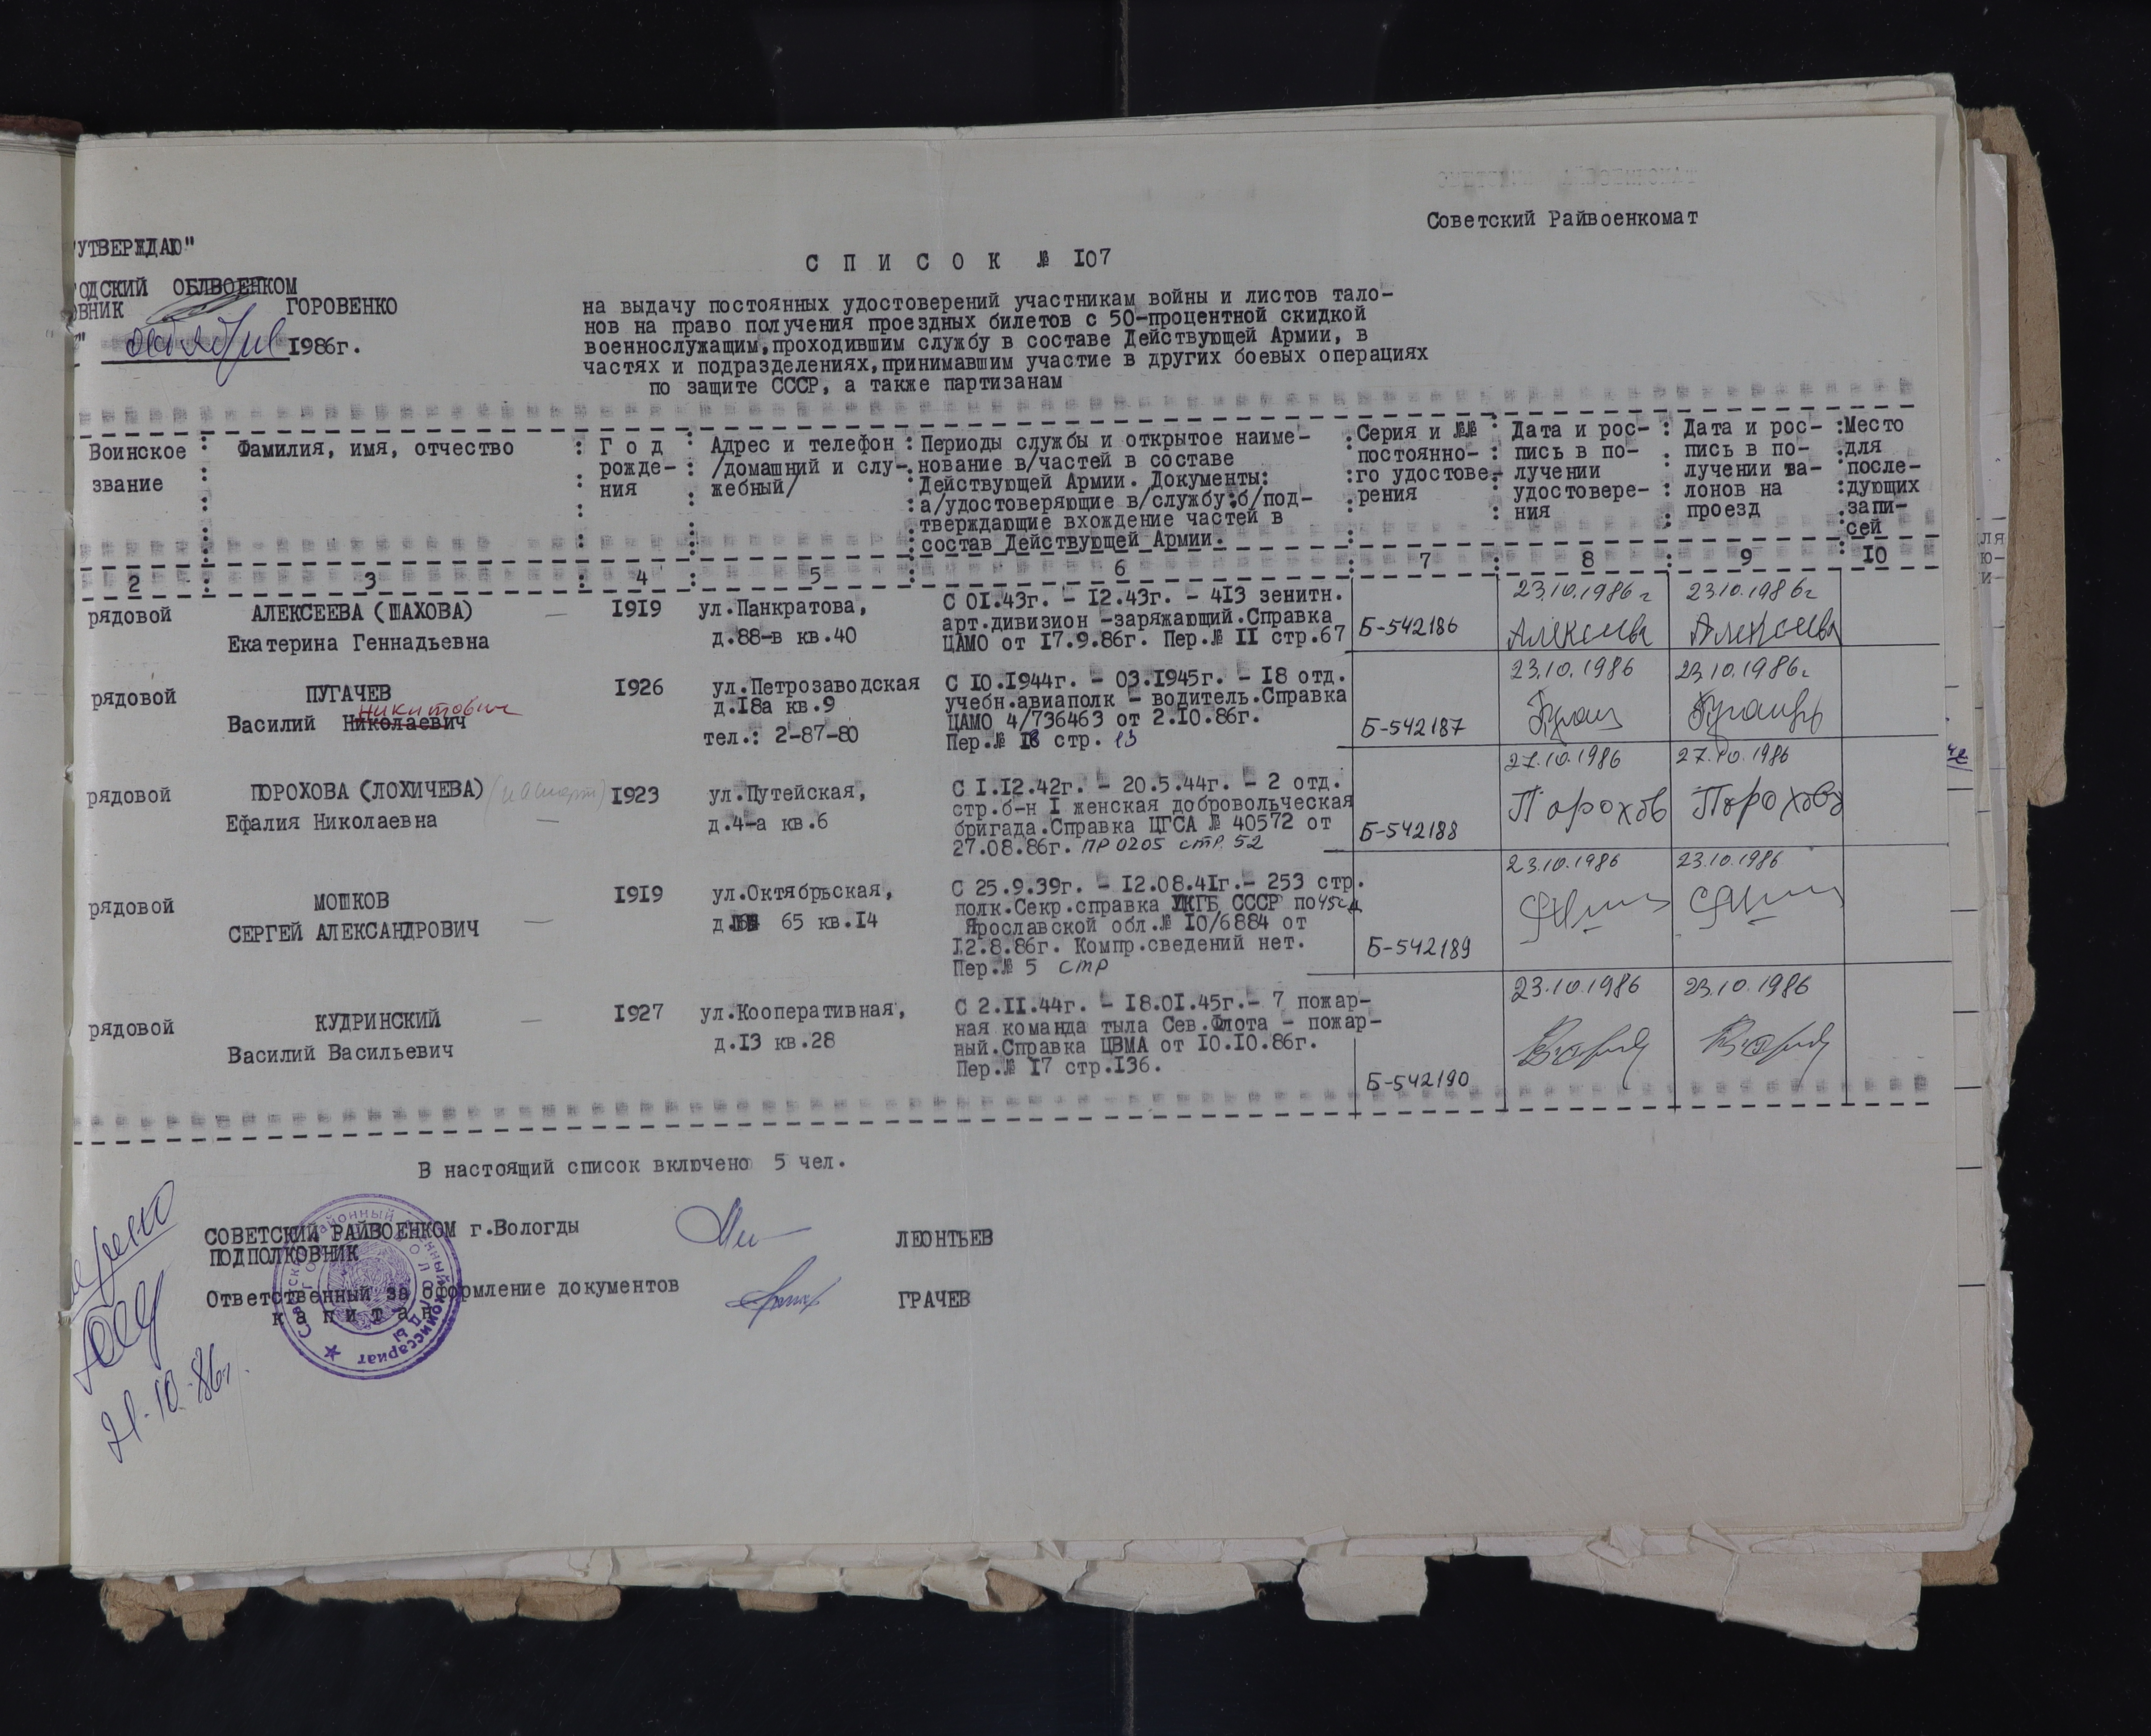 Советский Райвоенкомат
"УТВЕРЖДАЮ"
С П И С О К № 107
ОБЛВОЕНКОМ
ГОРОВЕНКО
октября 1986г.
на выдачу постоянных удостоверений участникам войны и листов тало-
нов на право получения проездных билетов с 50-процентной скидкой
военнослужащим,проходившим службу в составе Действующей Армии, в
частях и подразделениях,принимавшим участие в других боевых операциях
по защите СССР, а также партизанам
Воинское
звание
Фамилия, имя, отчество
Г о д
рожде-
ния
Адрес и телефон
/домашний и слу-
жебный/
Периоды службы и открытое наиме-
нование в/частей в составе
Действующей Армии. Документы:
а/удостоверяющие в/службу:б/под-
тверждающие вхождение частей в
состав Действующей Армии.
Серия и №№
постоянно-
го удостове-
рения
Дата и рос-
пись в по-
лучении
удостовере-
ния
Дата и рос-
пись в по-
лучении та-
лонов на
проезд
Место
для
после-
дующих
запи-
сей
2 3 4 5 6 7 8 9 10
рядовой
АЛЕКСЕЕВА (ШАХОВА)
Екатерина Геннадьевна
—
1919
ул.Панкратова,
д.88-в кв.40
С 01.43г. - 12.43г. - 413 зенитн.
арт.дивизион -заряжающий.Справка
ЦАМО от 17.9.86г. Пер.№ 11 стр.67
Б-542186
23.10.1986г
Алексеева
23.10.1986г
Алексеева
рядовой
ПУГАЧЕВ
Никитович
Василий Николаевич
1926
ул.Петрозаводская
д.18а кв.9
тел.: 2-87-80
С 10.1944г. - 03.1945г. - 18 отд.
учебн.авиаполк - водитель.Справка
ЦАМО 4/736463 от 2.10.86г.
Пер.№ 18 стр. 13
Б-542187
23.10.1986
23.10.1986г
рядовой
ПОРОХОВА (ЛОХИЧЕВА)
Ефалия Николаевна
—
1923
ул.Путейская,
д.4-а кв.6
С 1.12.42г. - 20.5.44г. - 2 отд.
стр.б-н 1 женская добровольческая
бригада.Справка ЦГСА № 40572 от
27.08.86г. ПР 0205 стр. 52
Б-542188
27.10.1986
Порохов
27.10.1986
Порохова
рядовой
МОШКОВ
СЕРГЕЙ АЛЕКСАНДРОВИЧ
—
1919
ул.Октябрьская,
д. 65 кв.14
С 25.9.39г. - 12.08.41г.- 253 стр.
полк.Секр.справка УКГБ СССР по 45сд
Ярославской обл.№ 10/6884 от
12.8.86г. Компр.сведений нет.
Пер.№ 5 стр
Б-542189
23.10.1986
23.10.1986
рядовой
КУДРИНСКИЙ
Василий Васильевич
—
1927
ул.Кооперативная,
д.13 кв.28
С 2.11.44г. - 18.01.45г.- 7 пожар-
ная команда тыла Сев.Флота - пожар-
ный.Справка ЦВМА от 10.10.86г.
Пер.№ 17 стр.136.
Б-542190
23.10.1986
23.10.1986
В настоящий список включено 5 чел.
СОВЕТСКИЙ РАЙВОЕНКОМ г.Вологды
ПОДПОЛКОВНИК
ЛЕОНТЬЕВ
Ответственный за оформление документов
капитан
ГРАЧЕВ
21.10.86г.